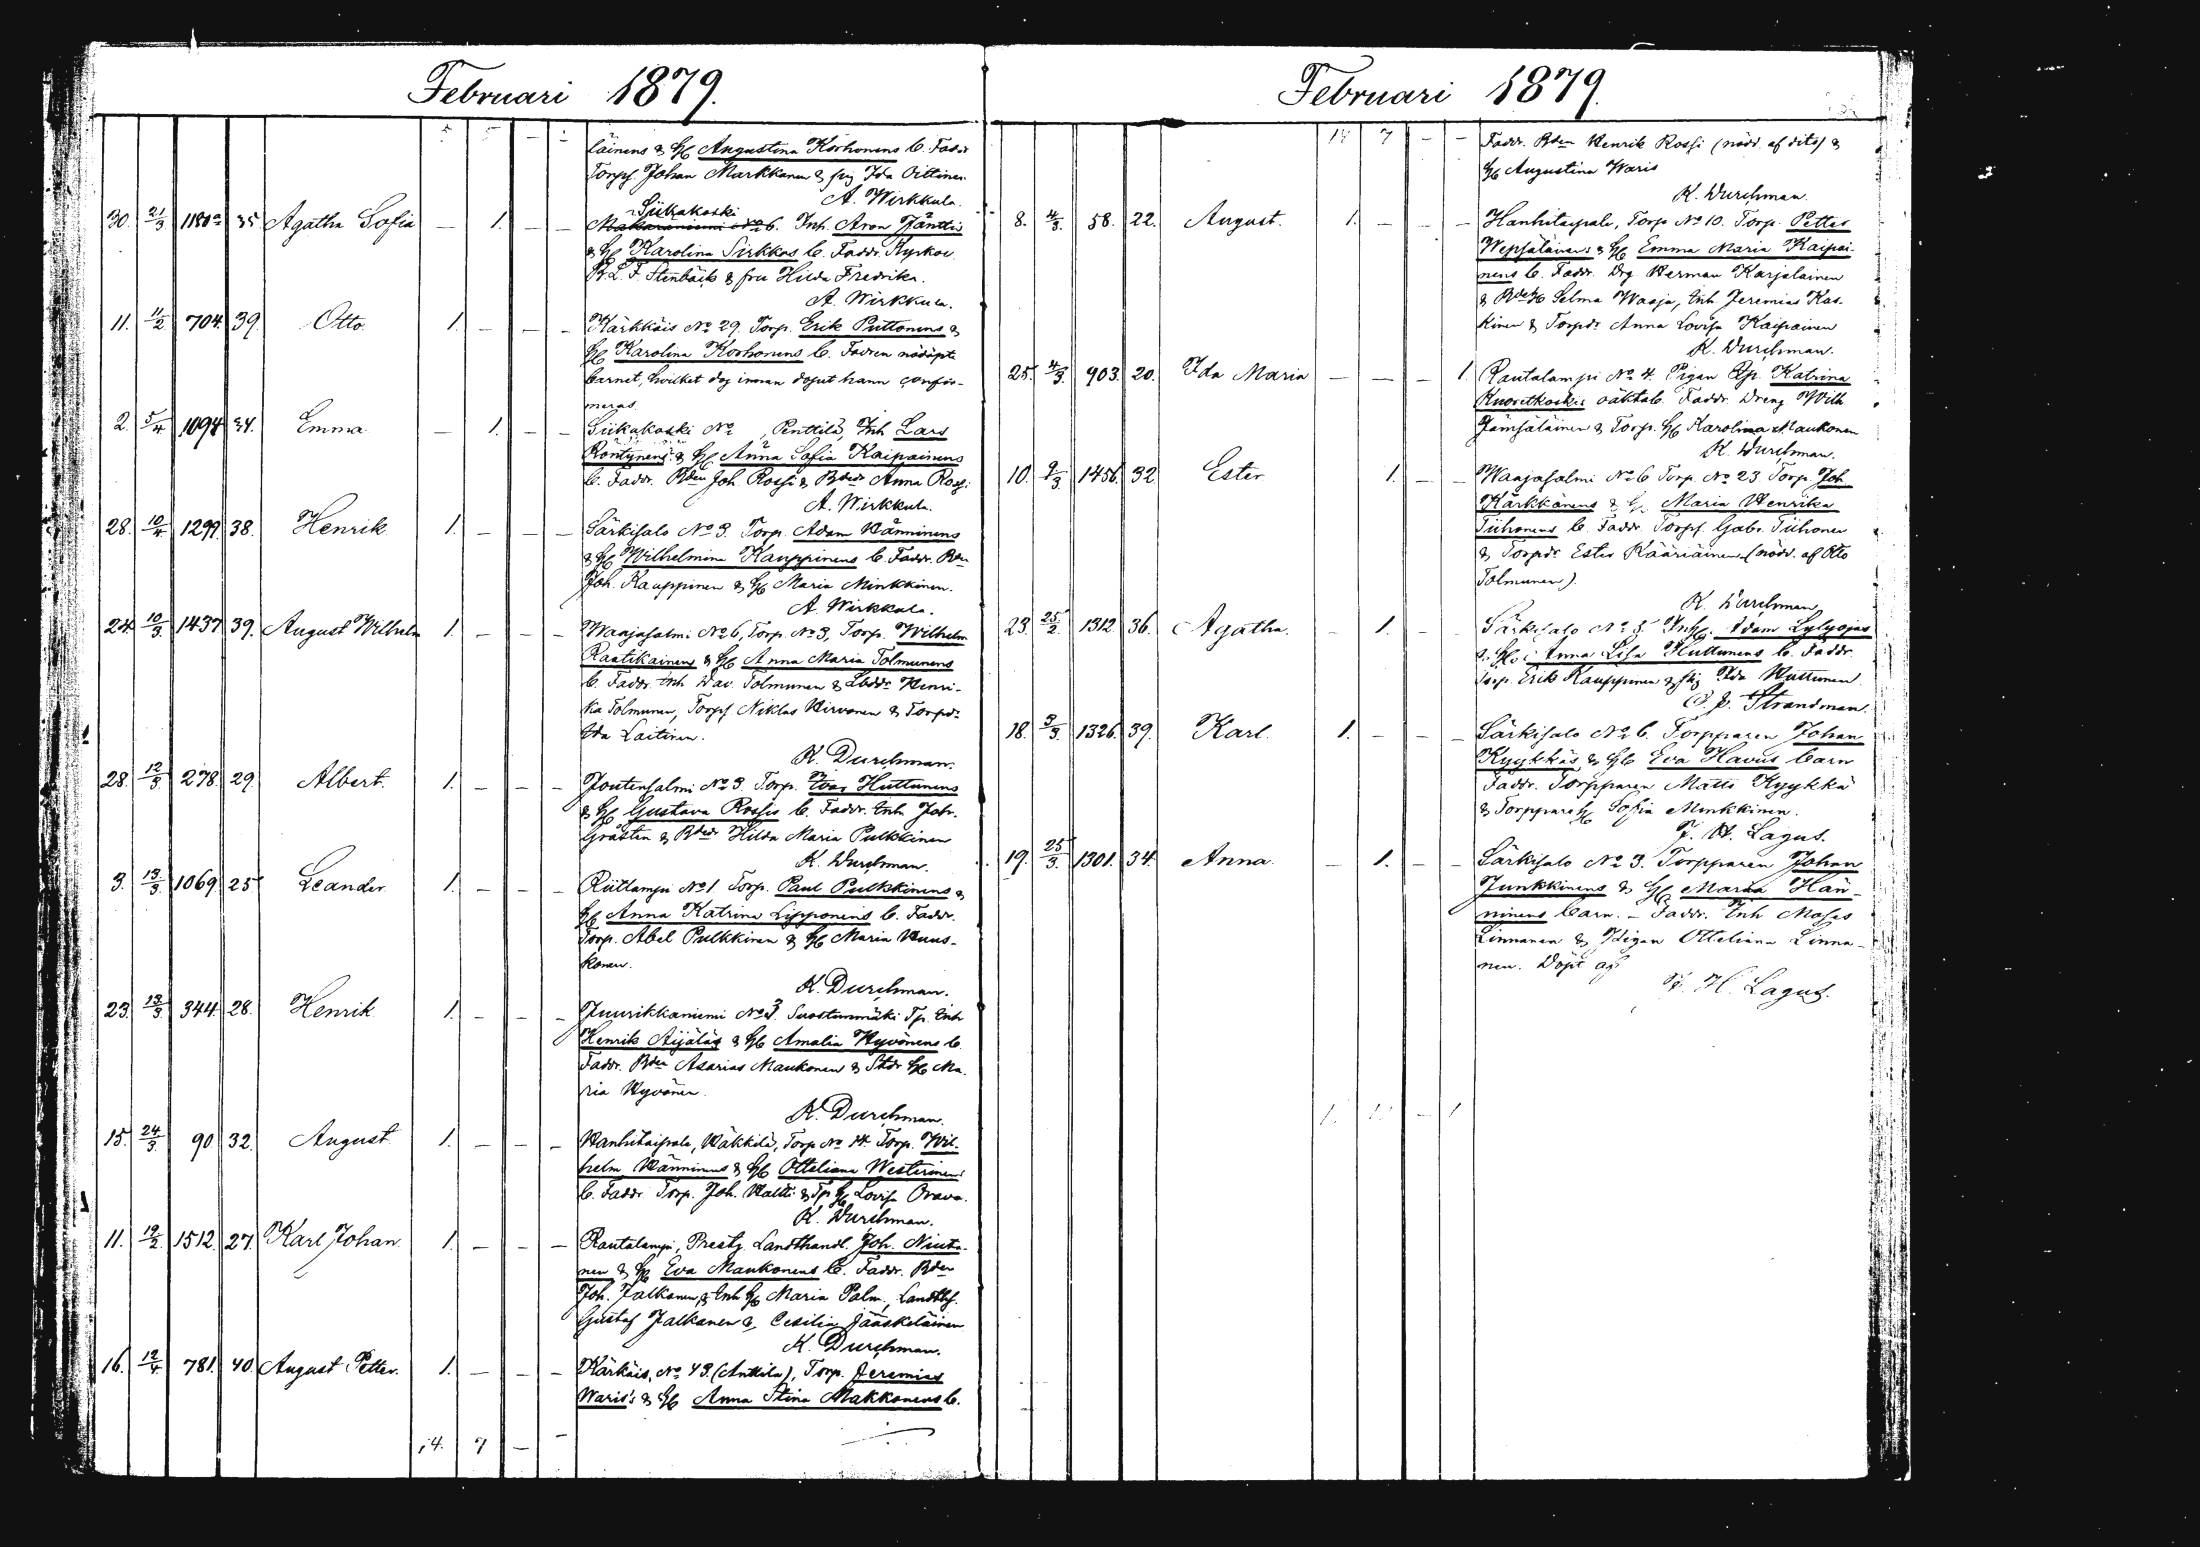 Februari 1879.
5 5 - -
läinens & H/ Augustina Korhonens b. Faddr
Torpf. Johan Markkanen & pig Ida Oittinen
A. Wirkkula.
Siikakoski
30. 21/3 35. Agatha Sofia - 1. - - No 6. Inh. Aron Jänttis
& H/ Karolina Sirkkas b. Faddr. Kyrkoh.
F. Stenbäck & fru Hilda Fredrika.
A. Wirkkula.
11. 11/2 704. 39. Otto. 1. - - - Kärkkäis No 29. Torp. Erik Puttonens &
H/ Karolina Korhonens b. Fadren nöddöpte
barnet, hvilket dog innan dopet hann confir-
meras.
2. 5/4 1094 Emma. - 1. - - Siikakoski No , Penttilä, Inh Lars
Röntynens & H/ Anna Sofia Kaipainens
b. Faddr. Bden Joh Rossi & Bdedr Anna Rossi
A. Wirkkula.
28. 10/4 1299. 38. Henrik 1. - - - Särkisalo No 3. Torp. Adam Hänninens
& H/ Wilhelmina Kauppinens b. Faddr. Bden
Joh. Kauppinen & H/ Maria Minkkinen.
A. Wirkkula.
24. 10/3 1437 39. August Wilhelm 1. - - - Waajasalmi No 6, Torp. No 3, Torp. Wilhelm
Raatikainens & H/ Anna Maria Tolmunens
b. Faddr. Inh Dav. Tolmunen & Henri-
ka Tolmunen, Torpf Niklas Hirvonen & Torpdr
Ida Laitinen.
K. Durchman.
28. 12/3 278. 29. Albert. 1. - - - Joutensalmi No 3. Torp. Huttunens
& H/ Gustava Rossis b. Faddr. Inh Joh.
Gråsten & Bdedr Hilda Maria Pulkkinen
K. Durchman.
3. 13/3 1069. 25 Leander 1. - - - Riitlampi No 1 Torp. Paul Pulkkinens &
H/ Anna Katrina Lipponens b. Faddr.
Torp. Abel Pulkkinen & H/ Maria Huus-
konen.
K. Durchman.
23. 13/3 344. 28. Henrik 1. - - - Juurikkaniemi No 3. Suostunmäki Tp. Inh
Henrik Äijäläs & H/ Amalia Hyvönens b.
Faddr. Bden Asarias Maukonen & H/ Ma-
ria Hyvönen.
K. Durchman.
15. 24/3 90 32. August 1. - - - Hanhitaipale, Häkkilä, Torp No 14. Torp. Wil-
helm Hänninens & H/ Otteliana Westerinens
b. Faddr. Torp. Joh. Haltti & Tp H/ Lovisa Orava.
K. Durchman.
11. 19/2 1512. 27. Karl Johan. 1. - - - Rautalampi, Prestg. Landthandl. Joh. Niuta-
nen & H/ Eva Maukonens b. Faddr. Bden
Joh. Jalkanen & Inh H/ Maria Palm, Landthf.
Gustaf Jalkanen & Cecilia Jääskeläinen
K. Durchman.
16. 12/4 781. 40. August Petter. 1. - - - Kärkäis, No 43. (Anttila), Torp. Jeremias
Waris's & H/ Anna Stina Makkonens b.
14. 7 - -
Februari 1879.
14 7 - -
Faddr. Bden Henrik Rossi (nödd. af dito) &
H/ Augustina Waris
K. Durchman.
8. 4/3. 58. 22. August. 1. - - - Hanhitaipale, Torp No 10. Torp. Petter
Wepsäläinens & H/ Emma Maria Kaipai-
nens b. Faddr. Drg Herman Karjalainen
& BdeH/ Selma Waaja, Inh Jeremias Kas-
kinen & Torpdr Anna Lovisa Kaipainen
K. Durchman.
25. 4/3. 903. 20. Ida Maria - - - 1. Rautalampi No 4. Pigan Katrina
Kuoretkoskis oäktab. Faddr. Dreng Wilh
Jämsäläinen & Torp. H/ Karolina Maukonen
K. Durchman.
10. 9/3 1456. 32 Ester 1. - - Waajasalmi No 6 Torp No 23. Torp. Joh
Kärkkänens & H/ Maria Henrika
Tiihonens b. Faddr. Torpf. Gabr. Tiihonen
& Torpdr Ester Kääriäinen (nödd. af Otto
Tolmunen).
K. Durchman
23. 25/2 1312. 36. Agatha. - 1. - - Särkisalo No 3. Adam Lylyojas
& H/ Anna Lisa Huttunens b. Faddr.
Torp. Erik Kauppinen & pig Ida Huttunen
Strandman.
18. 3/3. 1326. 39. Karl. 1. - - - Särkisalo No 6. Torpparen Johan
Kyykkäs & H/ Eva Havus barn
Faddr. Torpparen Matts Kyykkä
& Torppare H/ Sofia Minkkinen.
F. H. Lagus.
19. 25/3. 1301. 34. Anna. - 1. - - Särkisalo No 3. Torpparen Johan
Junkkinens & H/ Maria Hän-
ninens barn. - Faddr. Inh Moses
Linnanen & Pigan Otteliana Linna-
nen. Döpt af
F. H. Lagus.